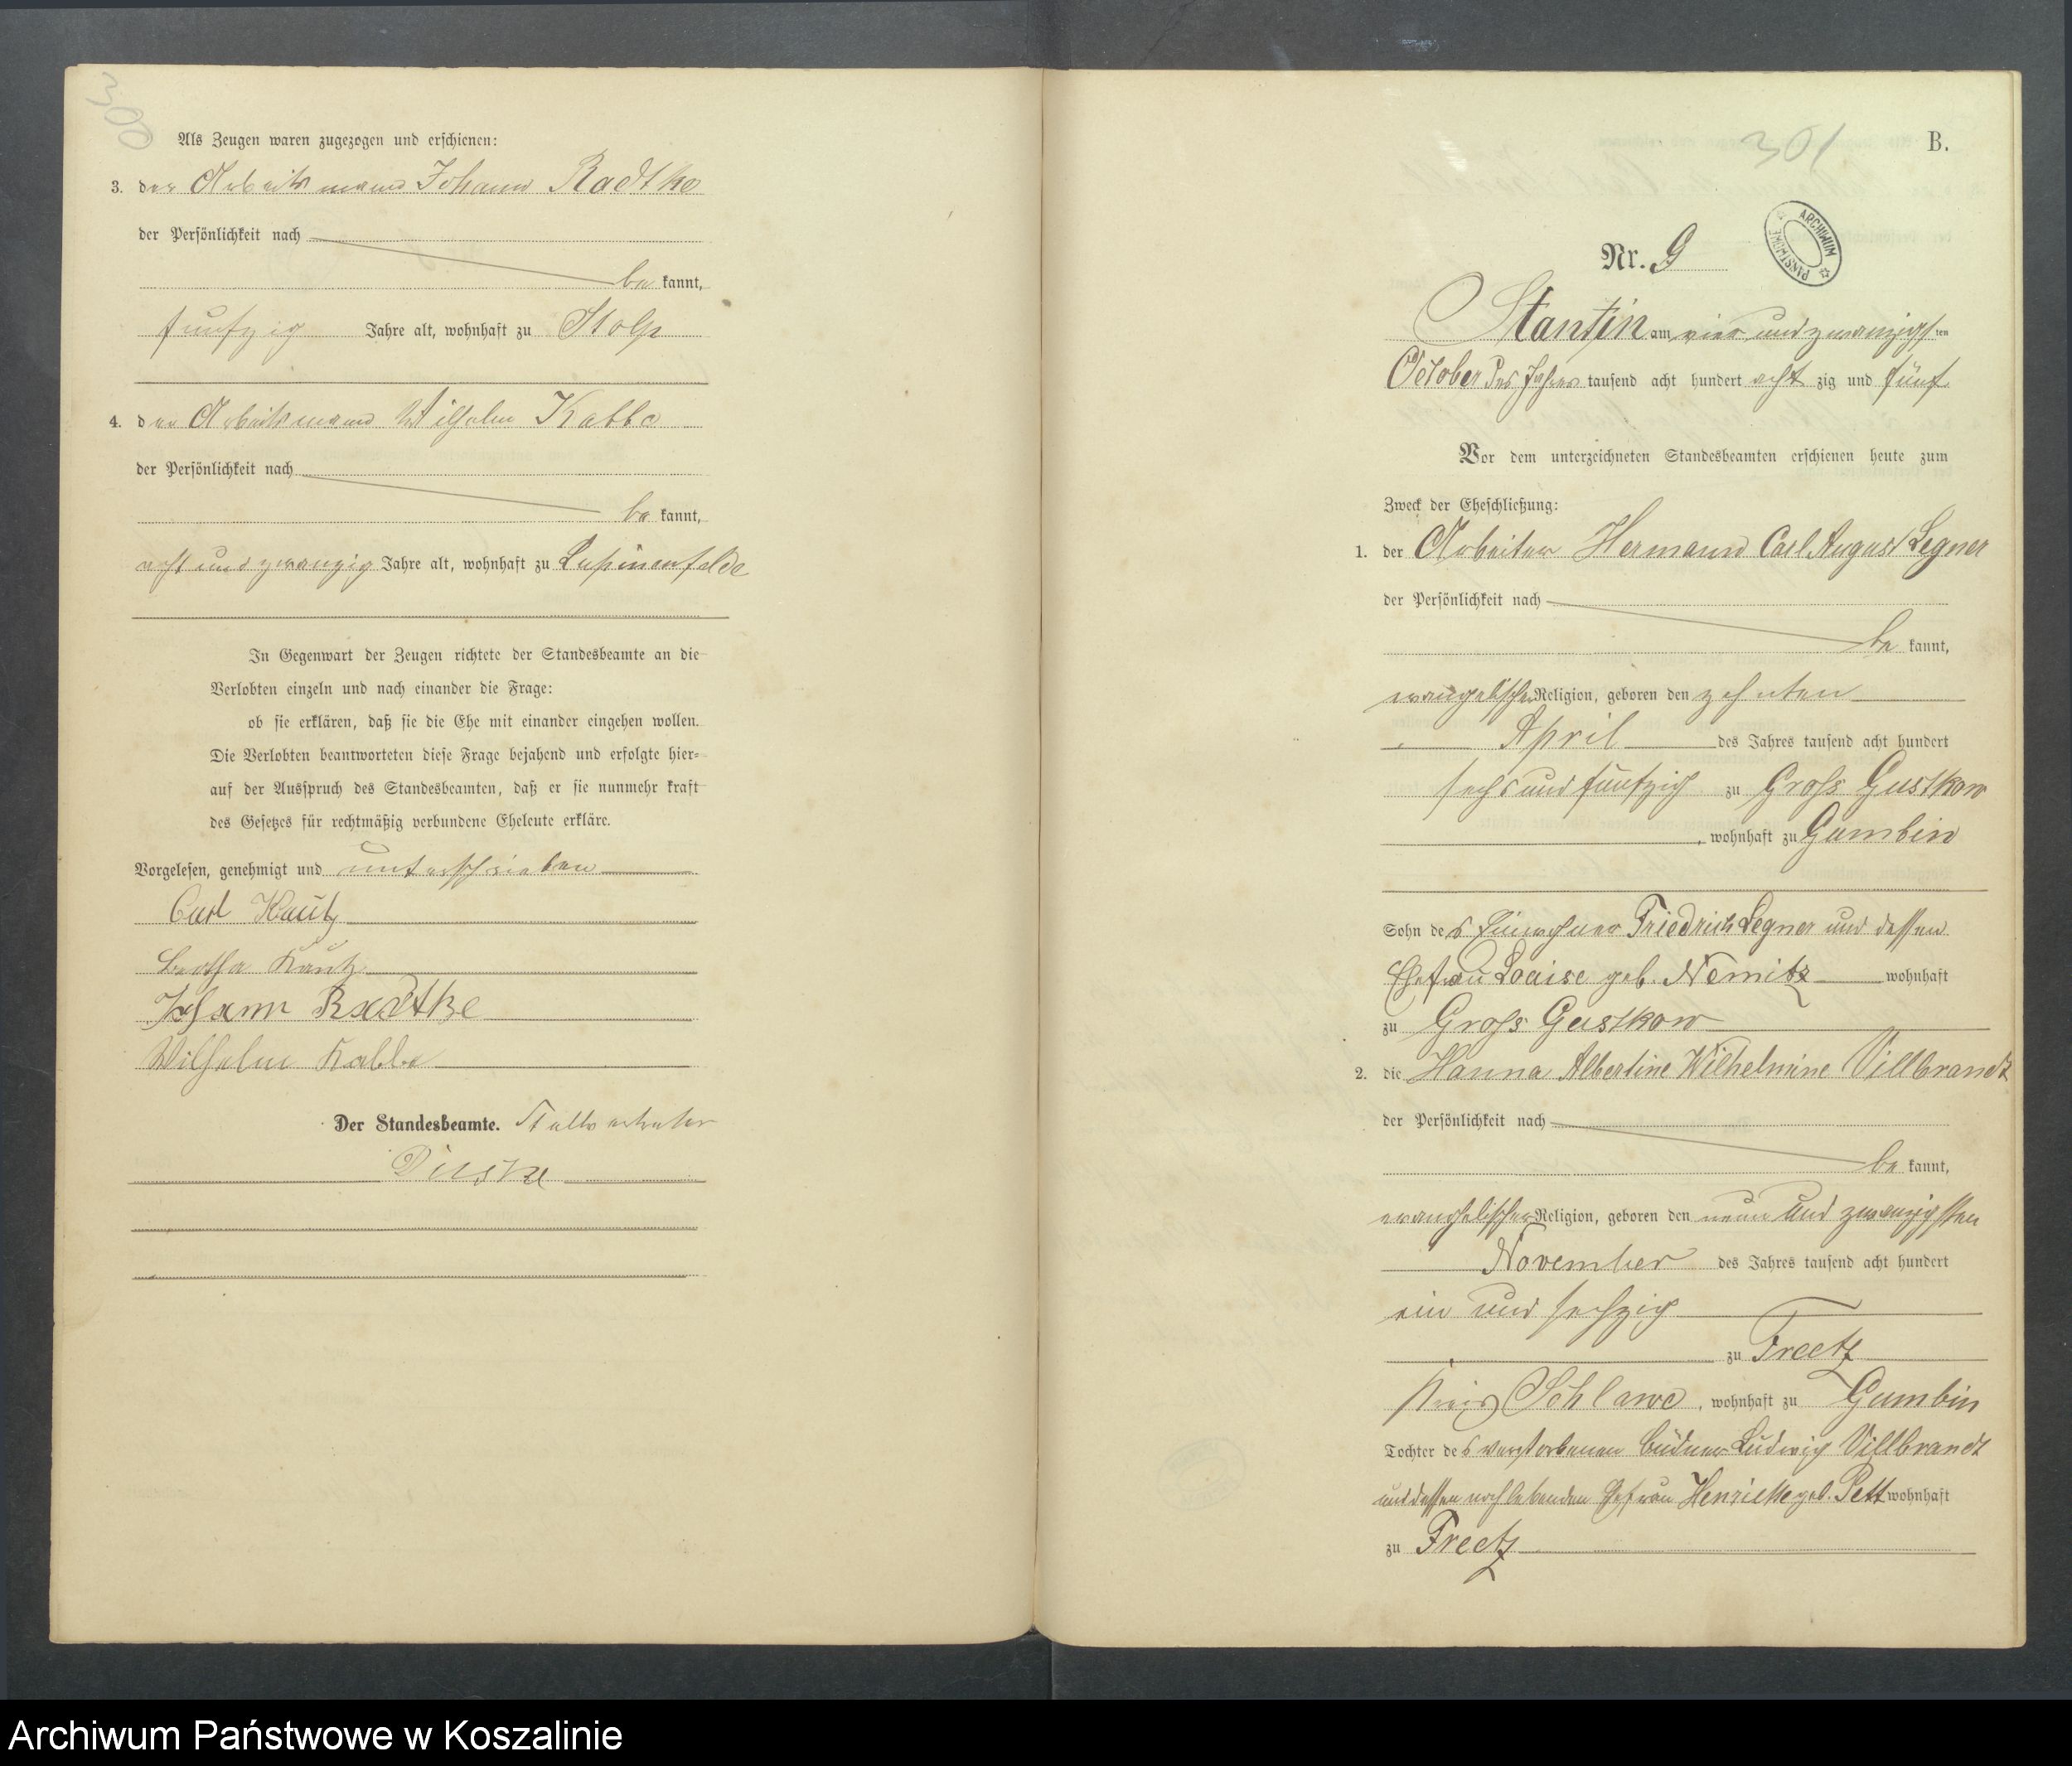 300
Als Zeugen waren zugezogen und erschienen:
3. der Arbeitsmann Johann Radtke
der Persönlichkeit nach
be kannt,
funfzig Jahre alt, wohnhaft zu Stolp
4. der Arbeitsmann Wilhelm Kabbe
der Persönlichkeit nach
be kannt,
acht und zwanzig Jahre alt, wohnhaft zu Lupinenfelde
In Gegenwart der Zeugen richtete der Standesbeamte an die
Verlobten einzeln und nach einander die Frage:
ob sie erklären, daß sie die Ehe mit einander eingehen wollen.
Die Verlobten beantworteten diese Frage bejahend und erfolgte hier-
auf der Ausspruch des Standesbeamten, daß er sie nunmehr kraft
des Gesetzes für rechtmäßig verbundene Eheleute erkläre.
Vorgelesen, genehmigt und unterschrieben
Carl Kautz
Bertha Kautz
Johann Radtke
Wilhelm Kabbe
Der Standesbeamte. Stellvertreter
301
B.
ARCHIWUM PAŃSTWOWE
Nr. 9
Stantin am vier und zwanzigsten
October des Jahres tausend acht hundert acht zig und fünf
Vor dem unterzeichneten Standesbeamten erschienen heute zum
Zweck der Eheschließung:
1. der Arbeiter Hermann Carl August Legner
der Persönlichkeit nach
be kannt,
evangelischer Religion, geboren den zehnten
April des Jahres tausend acht hundert
sechs und funfzig zu Groß Gustkow
, wohnhaft zu Gumbin
Sohn des Einwohner Friedrich Legner und dessen
Ehefrau Louise geb. Nemitz wohnhaft
zu Groß Gustkow
2. die Hanna Albertine Wilhelmine Villbrandt
der Persönlichkeit nach
be kannt,
evangelischer Religion, geboren den neun und zwanzigsten
November des Jahres tausend acht hundert
ein und sechzig
zu Freetz
Kreis Schlawe, wohnhaft zu Gumbin
Tochter des verstorbenen Büdner Ludwig Villbrandt
und dessen noch lebenden Ehefrau Henriette geb. Pett wohnhaft
zu Freetz
Archiwum Państwowe w Koszalinie